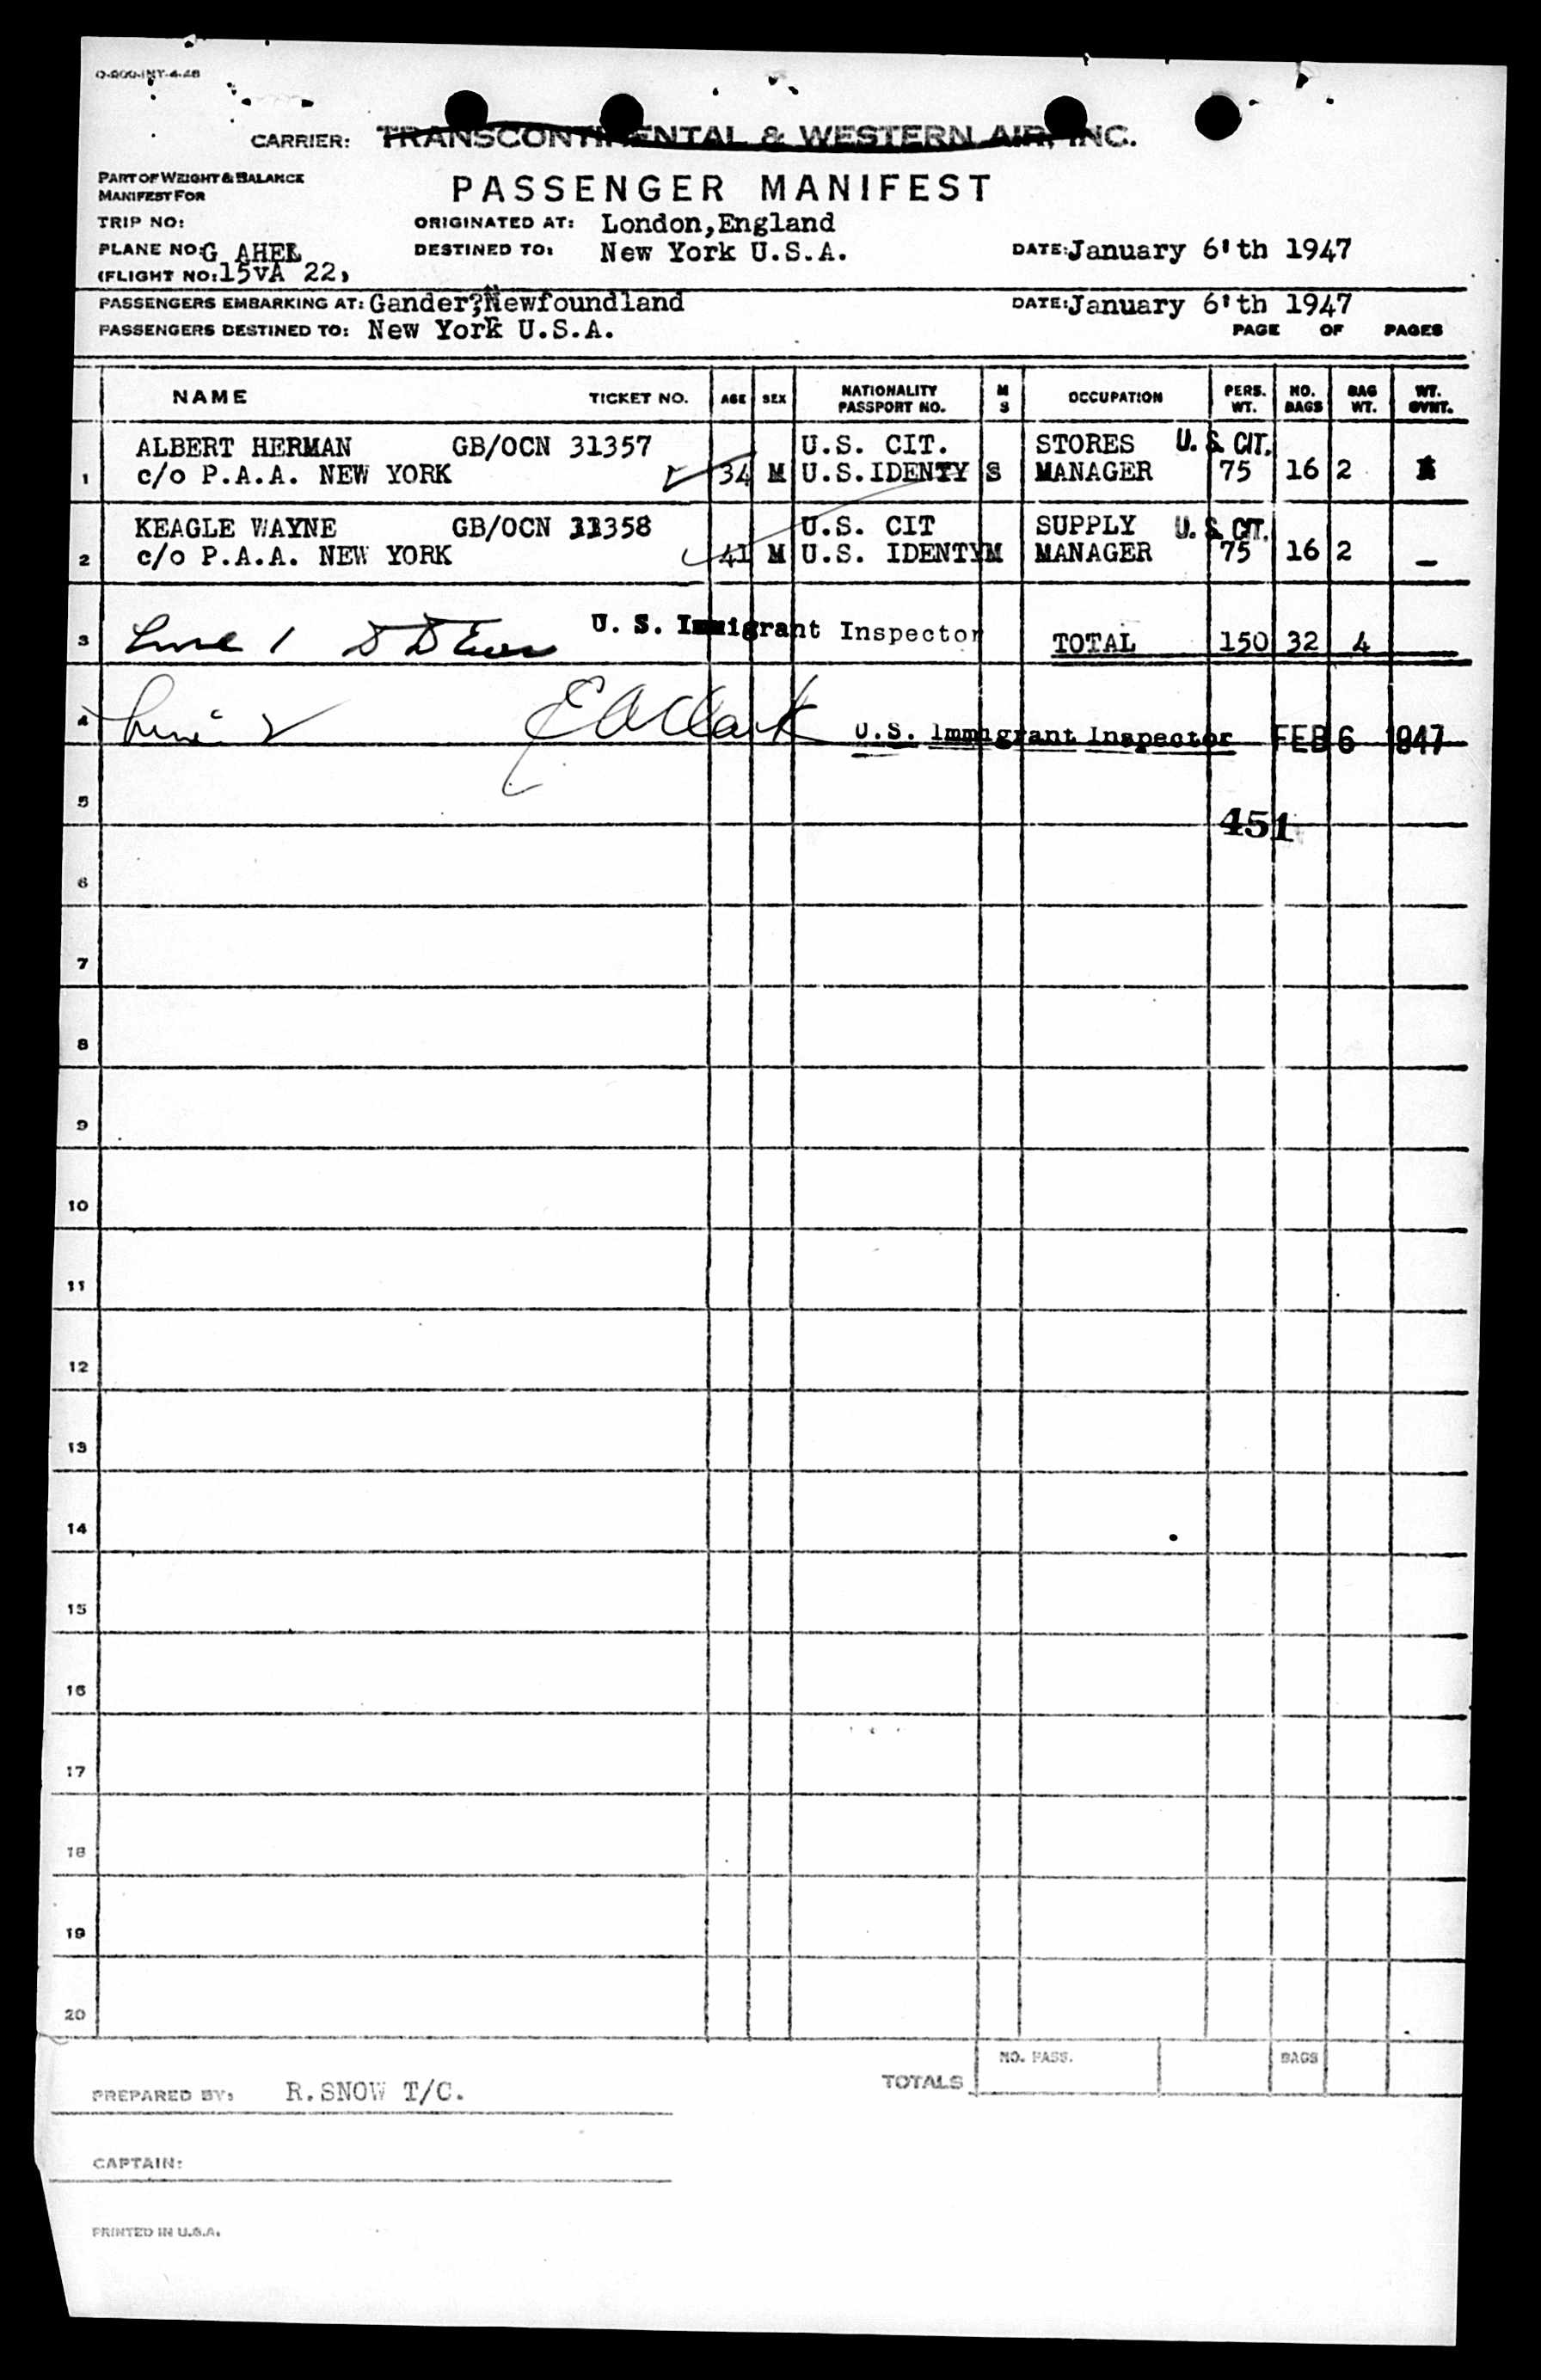 O-200-INT-4-46
CARRIER: TRANSCONTINENTAL & WESTERN AIR, INC.
PART OF WEIGHT & BALANCE
MANIFEST FOR
PASSENGER MANIFEST
TRIP NO: ORIGINATED AT: London,England
PLANE NO: G AHEL DESTINED TO: New York U.S.A. DATE: January 6'th 1947
(FLIGHT NO: 15VA 22)
PASSENGERS EMBARKING AT: Gander, Newfoundland DATE: January 6'th 1947
PASSENGERS DESTINED TO: New York U.S.A. PAGE OF PAGES
NAME TICKET NO. AGE SEX NATIONALITY PASSPORT NO. M S OCCUPATION PERS. WT. NO. BAGS BAG WT. WT. OVNT.
ALBERT HERMAN GB/OCN 31357 U.S. CIT. STORES U. S. CIT.
1 c/o P.A.A. NEW YORK 34 M U.S.IDENTY S MANAGER 75 16 2
KEAGLE WAYNE GB/OCN 31358 U.S. CIT SUPPLY U. S. CIT.
2 c/o P.A.A. NEW YORK 41 M U.S. IDENTY M MANAGER 75 16 2 _
3 Line 1 U. S. Immigrant Inspector TOTAL 150 32 4
4 Line 2 E A Clark U.S. Immigrant Inspector FEB 6 1947
5
451
6
7
8
9
10
11
12
13
14
15
16
17
18
19
20
TOTALS NO. PASS. BAGS
PREPARED BY: R.SNOW T/C.
CAPTAIN:
PRINTED IN U.S.A.